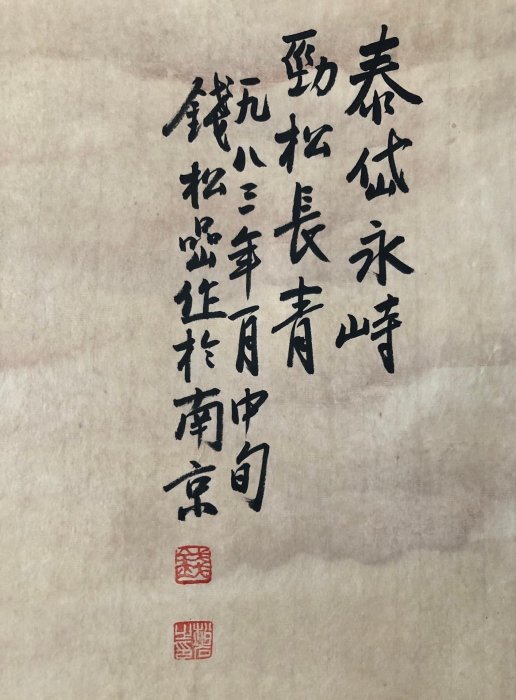 泰岱永峙
勁松長青
一九八三年一月中旬
錢松嵒作於南京
錢